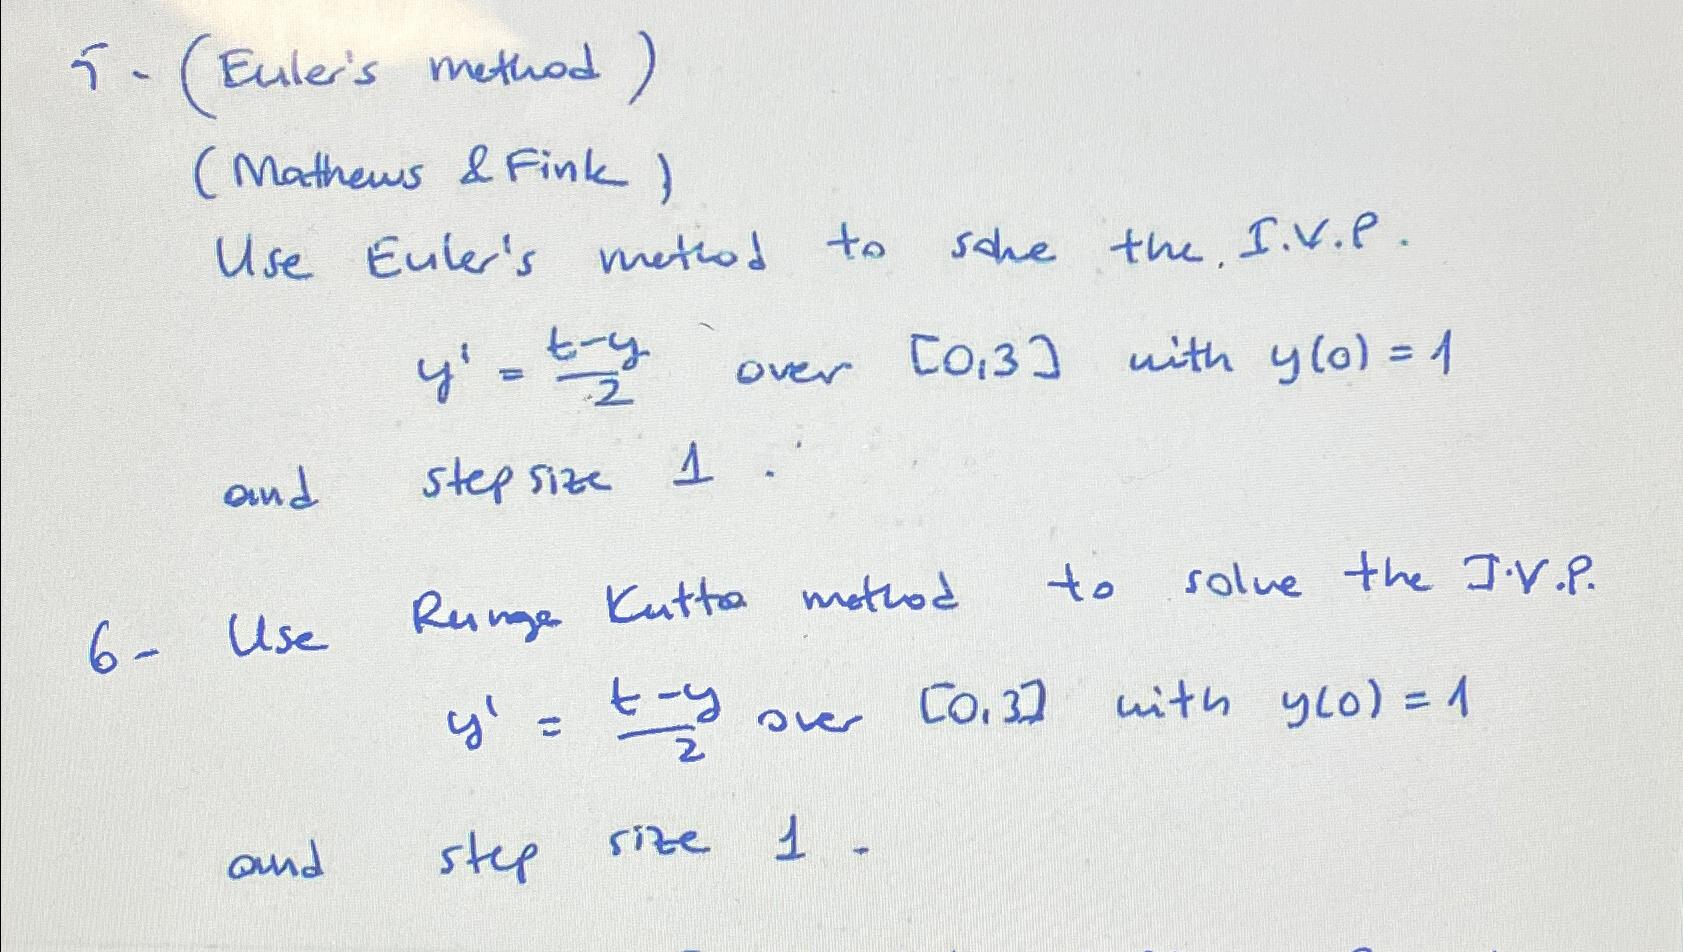 5 - (Euler's method)
(Mathews & Fink)
Use Euler's method to solve the I.V.P.
y' = \frac{t-y}{2} over [0,3] with y(0) = 1
and step size 1.
6- Use Runge Kutta method to solve the I.V.P.
y' = \frac{t-y}{2} over [0,3] with y(0) = 1
and step size 1.